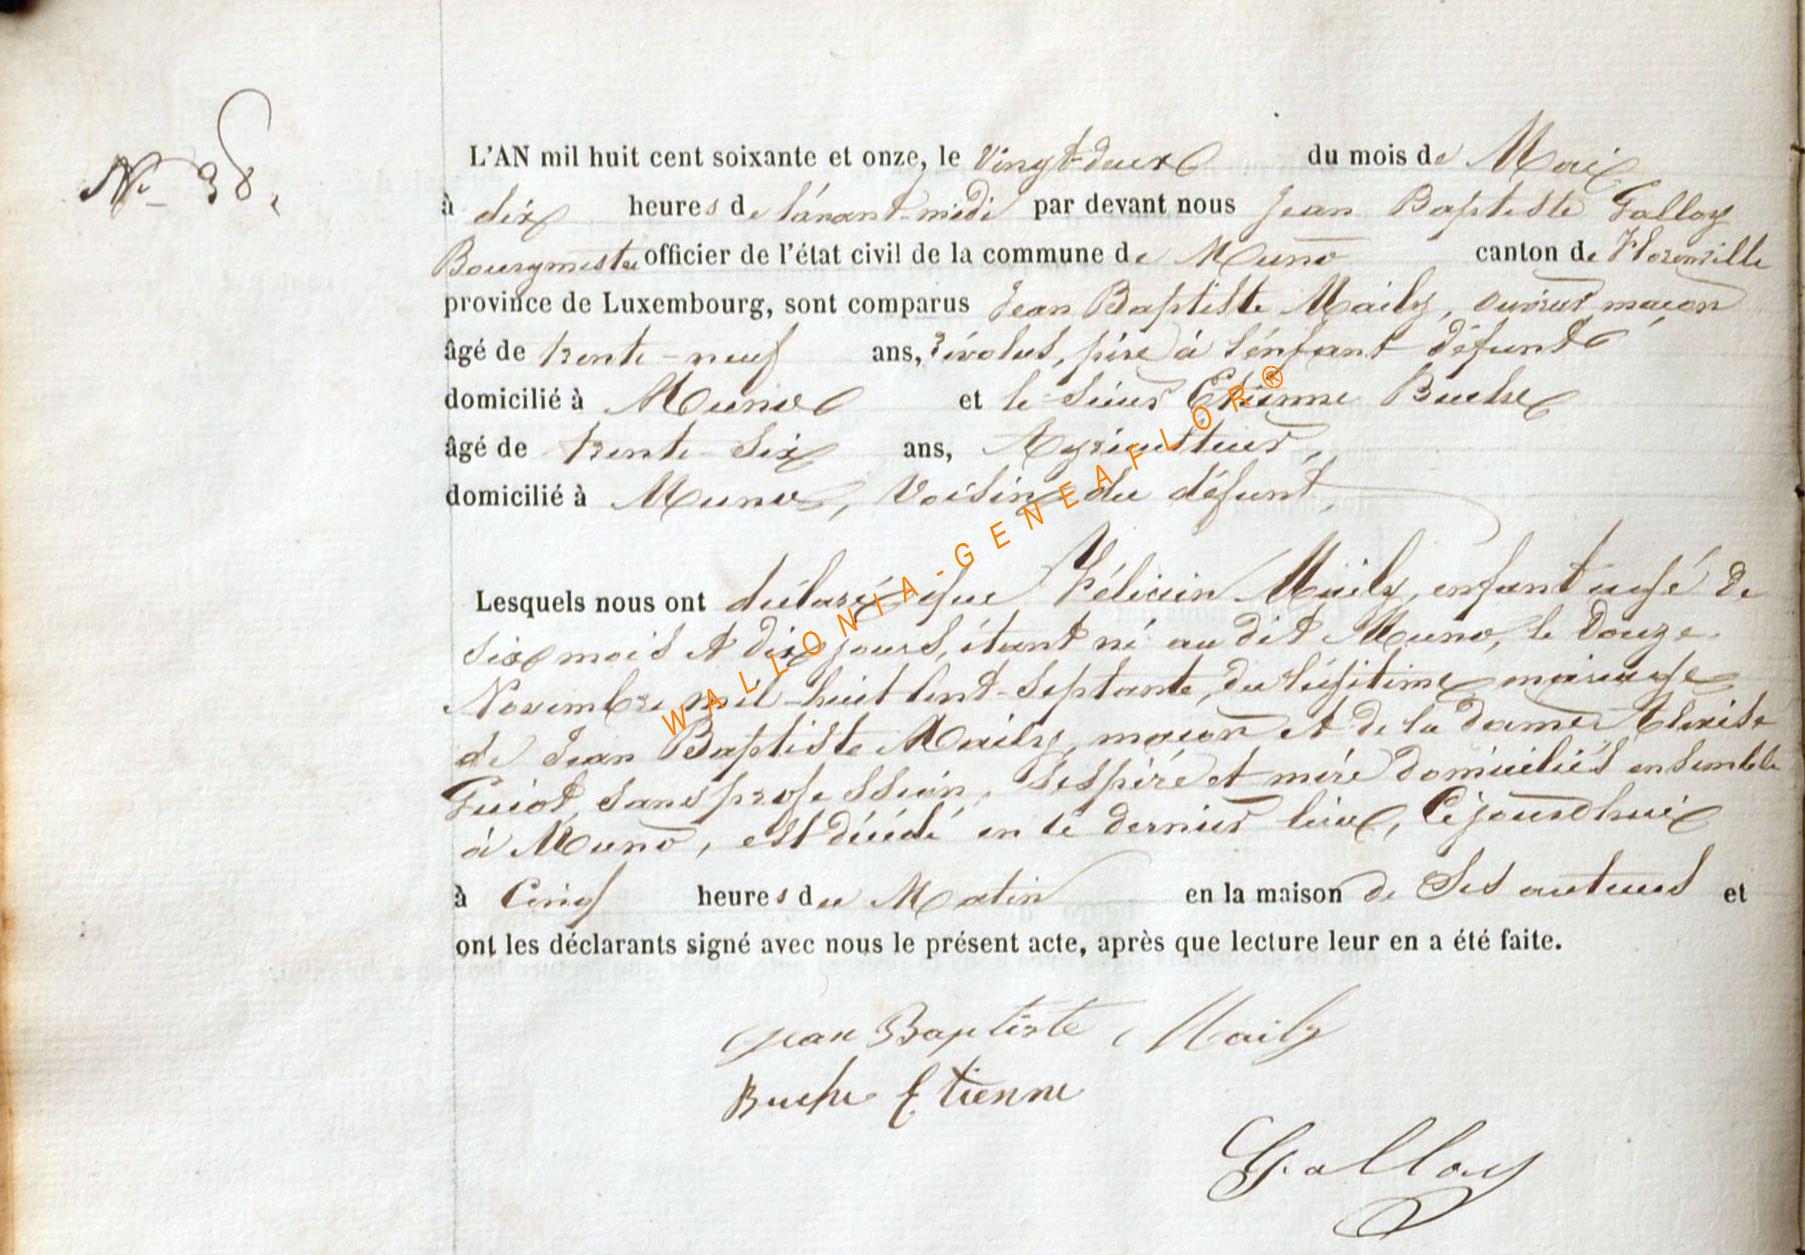 N° 38.
L'AN mil huit cent soixante et onze, le Vingt-deux du mois de Mai
à dix heures de l'avant-midi par devant nous Jean Baptiste Galloy
Bourgmestre officier de l'état civil de la commune de Muno canton de Florenville
province de Luxembourg, sont comparus Jean Baptiste Maily, ouvrier maçon
âgé de trente-neuf ans, révolus, père à l'enfant défunt
domicilié à Muno et le sieur Etienne Buche
âgé de trente-six ans, Agriculteur,
domicilié à Muno, Voisin du défunt,
Lesquels nous ont déclaré que Félicien Maily, enfant agé de
six mois et dix jours, étant né au dit Muno, le douze
Novembre mil-huit cent-septante, du légitime mariage
de Jean Baptiste Maily, maçon et de la dame
Guiot, sans profession, ses père et mère domiciliés ensemble
à Muno, est décédé en ce dernier lieu, Cejourdhui
à Cinq heures du Matin en la maison de Ses auteurs et
ont les déclarants signé avec nous le présent acte, après que lecture leur en a été faite.
Jean Baptiste Maily
Buche Etienne
Galloy
WALLONIA-GENEAFLOR®